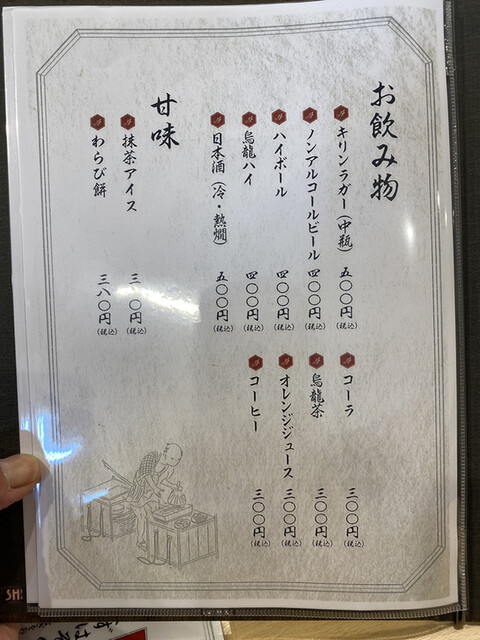 お飲み物
キリンラガー(中瓶) 五〇〇円(税込)
ノンアルコールビール 四〇〇円(税込)
ハイボール 四〇〇円(税込)
烏龍ハイ 四〇〇円(税込)
日本酒(冷・熱燗) 五〇〇円(税込)
コーラ 三〇〇円(税込)
烏龍茶 三〇〇円(税込)
オレンジジュース 三〇〇円(税込)
コーヒー 三〇〇円(税込)
甘味
抹茶アイス 円(税込)
わらび餅 三八〇円(税込)